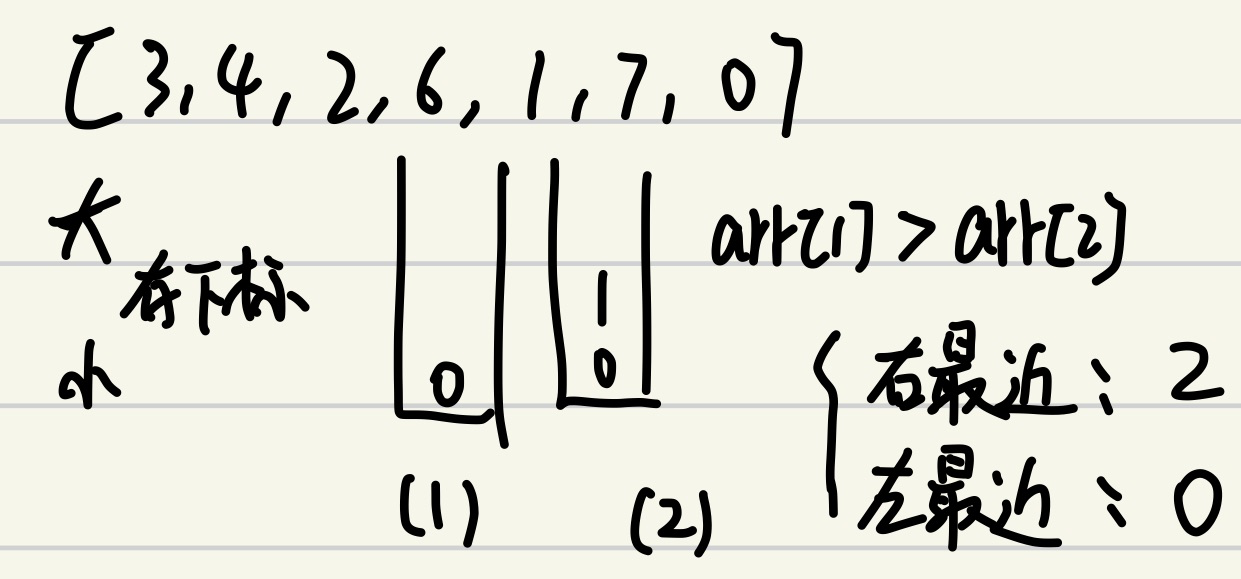 [3,4,2,6,1,7,0]
大
存下标
小
0
1
0
(1)
(2)
arr[1] > arr[2]
右最近：2
左最近：0